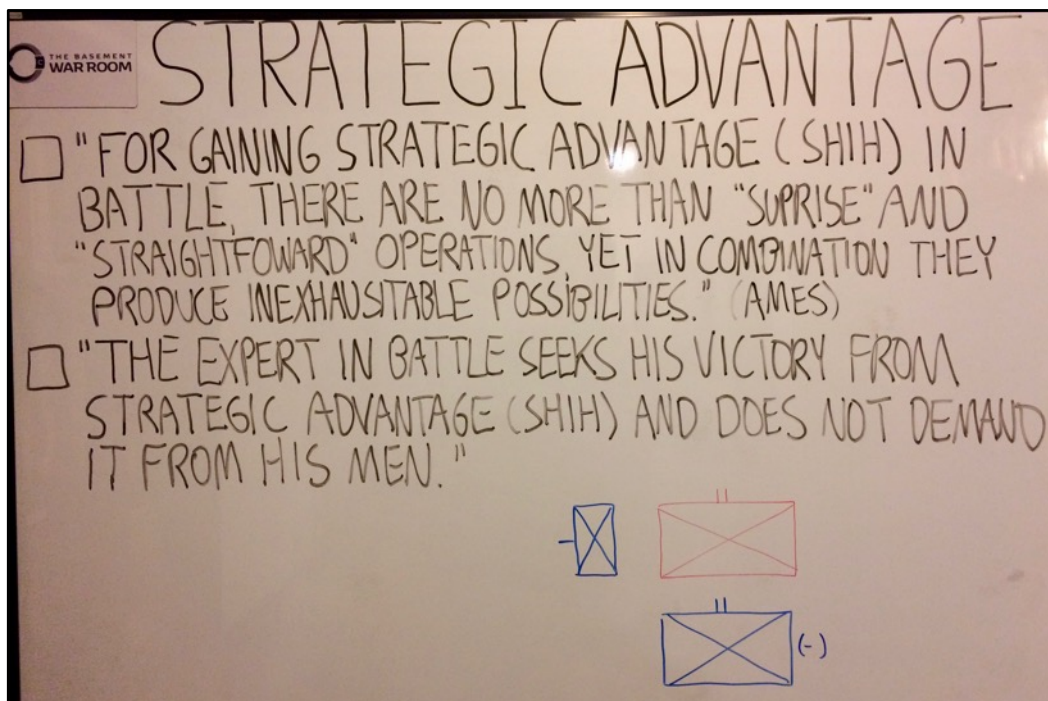 THE BASEMENT
WAR ROOM
STRATEGIC ADVANTAGE
"FOR GAINING STRATEGIC ADVANTAGE (SHIH) IN
BATTLE, THERE ARE NO MORE THAN "SUPRISE" AND
"STRAIGHTFOWARD" OPERATIONS, YET IN COMBINATION THEY
PRODUCE INEXHAUSITABLE POSSIBILITIES." (AMES)
"THE EXPERT IN BATTLE SEEKS HIS VICTORY FROM
STRATEGIC ADVANTAGE (SHIH) AND DOES NOT DEMAND
IT FROM HIS MEN."
(-)